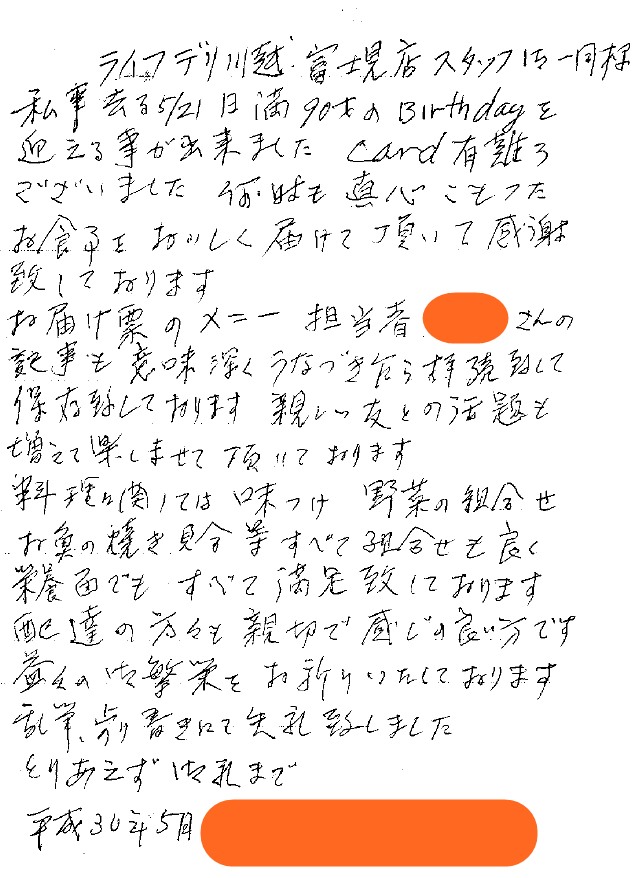 ライフデリ川越・富士見店スタッフ御一同様
私事去る5/21日満90才のBirthdayを
迎える事が出来ました Card有難う
ございました 何時も真心こもった
お食事を おいしく届けて頂いて感謝
致しております
お届け票のメニュー 担当者 さんの
記事も意味深くうなづき乍ら拝読致して
保存致しております 親しい友との話題も
増えて楽しませて頂いております
料理に関しては味つけ 野菜の組合せ
お魚の焼き具合等すべて組合せも良く
栄養面でも すべて満足致しております
配達の方々も親切で感じの良い方です
益々の御繁栄をお祈りいたしております
乱筆、走り書きにて失礼致しました
とりあえず御礼まで
平成30年5月